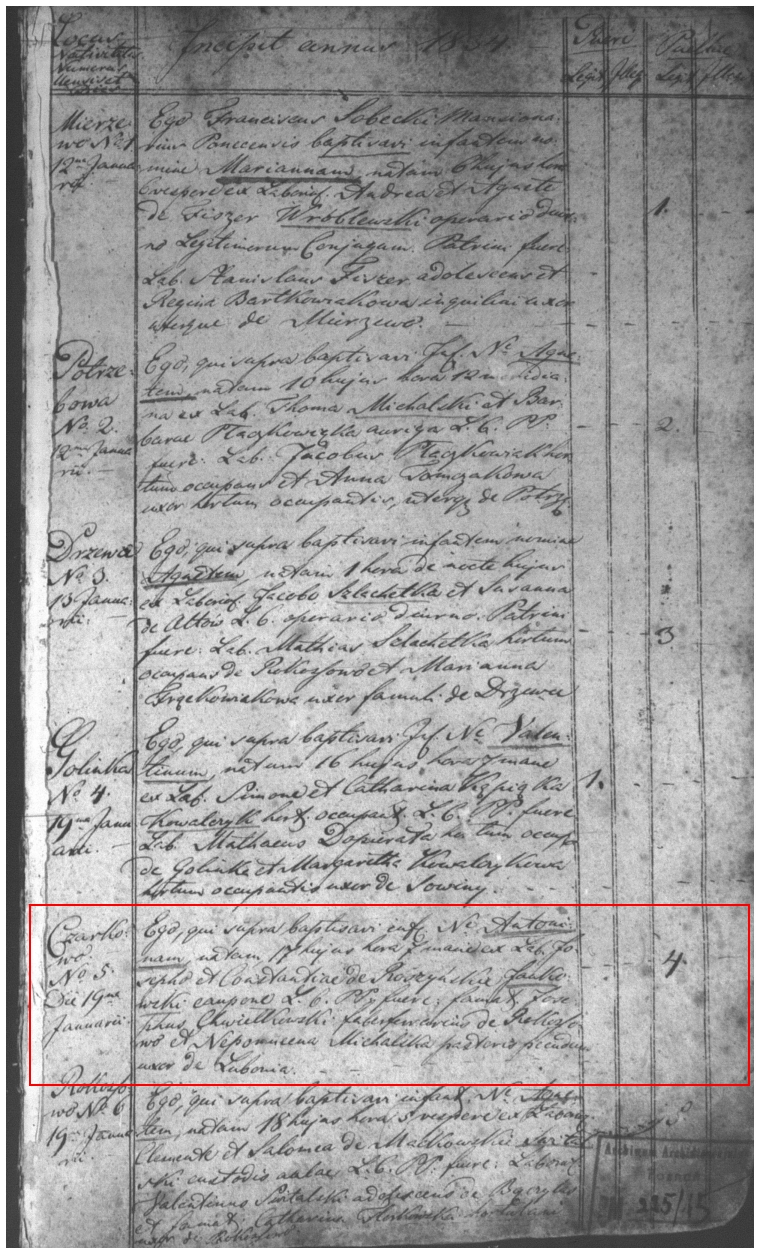 Locus
Nativitatis
Numerus
Incipit annus 1834
Pueri
Puellae
Legit. Illeg.
Legit. Illegi.
Mierze-
wo No 1
12ma Janua-
rii
Ego Franciscus Sobecki Mansiona-
rius Ponecensis baptisavi infantem no-
mine Mariannam, natam 6 hujus hora
6 vespere ex Laborios. Andrea et Agnete
de Fiszer Wroblewski operario diur-
no Legitimorum Conjugum. Patrini fuere
Lab. Stanislaus Fiszer adolescens et
Regina Bartkowiakowa inquilini uxor
uterque de Mierzewo.
1.
Potrze-
bowa
No. 2.
12ma Janua-
rii.
Ego, qui supra baptisavi Inf. Ne Agne-
tem, natam 10 hujus hora 12 meridia-
na ex Lab. Thoma Michalski et Bar-
barae Ptaczkowizka auriga L. C. PP.
fuere: Lab. Jacobus Ptaczkowiak hor-
tum occupans et Anna Tomczakowa
uxor hortum occupantis, uterq de Potrz.
2.
Drzewce
No 3.
13 Janua-
rii.
Ego, qui supra baptisavi infantem nomine
Agnetem, natam 1 hora de nocte hujus
ex Laborios. Jacobo Szlachetka et Susanna
de Attow L. C. operario diurno. Patrini
fuere: Lab. Mathias Szlachetka hortum
occupans de Rokossowo et Marianna
Grzekowiakowa uxor famuli de Drzewce
3
Golinka
No 4.
19na Janu-
arii.
Ego, qui supra baptisavi Inf. Ne Valen-
tinum, natum 16 hujus hora 7 mane
ex Lab. Simone et Catharina
Kowalczyk hort. occupant. L. C. PP. fuere
Lab. Mathaeus Dopierała hortum occup.
de Golinka et Margaretha Kowalczykowa
hortum occupantis uxor de Sowiny.
1.
Czarko-
wo
No 5.
Die 19na
Januarii.
Ego, qui supra baptisavi inf. Ne Antoni-
nam, natam 17 hujus hora 7 mane ex Lab. Jo-
sepho et Constantiae de Roszynskie Janko-
wski caupone L. C. PP. fuere: famat. Jose-
phus Chwiełkowski faber ferrarius de Rokosso-
wo et Nepomucena Michalska pastoris pecudum
uxor de Lubonia.
4.
Rokosso-
wo No 6
19na Janua-
rii.
Ego, qui supra baptisavi infant. Ne Agne-
tem, natam 18 hujus hora 5 vespere ex Laborios.
Clemente et Salomea de Małkowskie
custodis aulae L. C. PP. fuere: Laborios.
Valentinus adolescens de
et famat. Catharina
uxor de Rokossowo.
5
Archiwum Archidiecezjalne
Poznań
PM 235/15